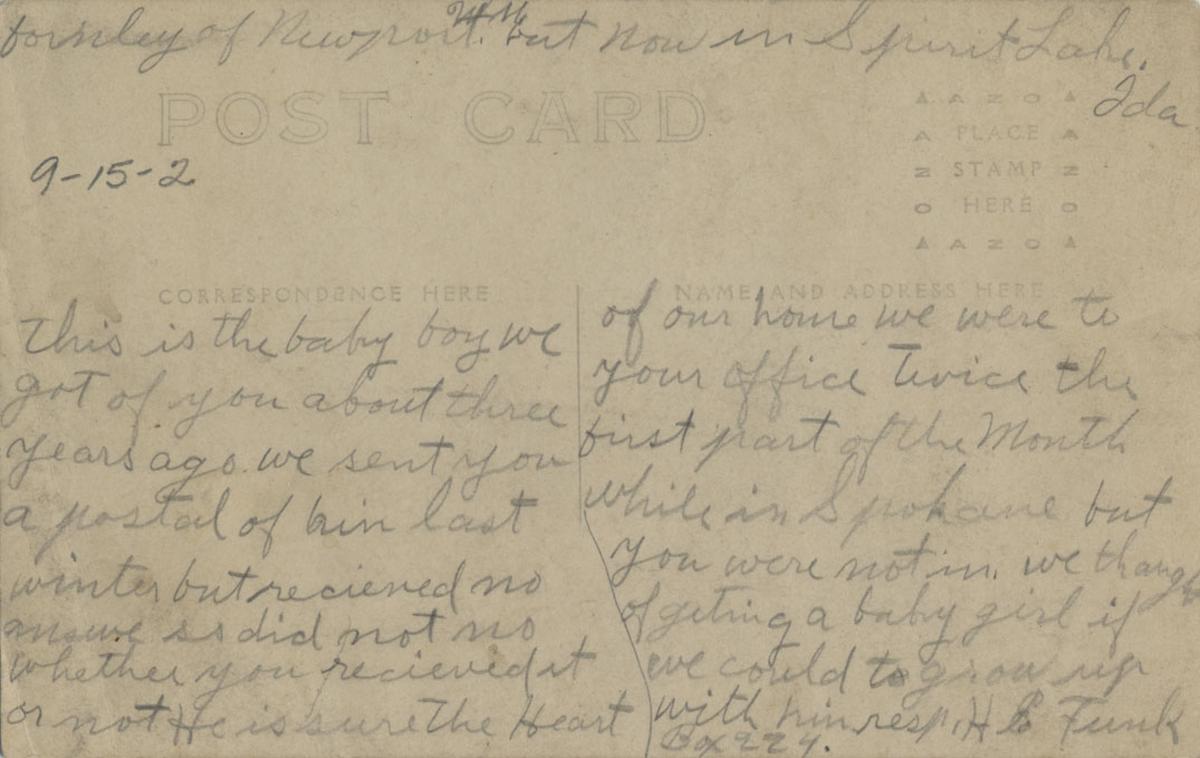 formley of Newport. Wn but now in Spirit Lake.
Ida
POST CARD
A A Z O A
A PLACE A
Z STAMP Z
O HERE O
A A Z O A
9-15-2
CORRESPONDENCE HERE
This is the baby boy we
got of you about three
years ago. we sent you
a postal of him last
winter but recieved no
answe so did not no
whether you recieved it
or not He is sure the Heart
NAME AND ADDRESS HERE
of our home we were to
your office Twice the
first part of the Month
while in Spokane but
you were not in. we thaught
of geting a baby girl if
we could to grow up
with him resp. H E Funk
Box 224.